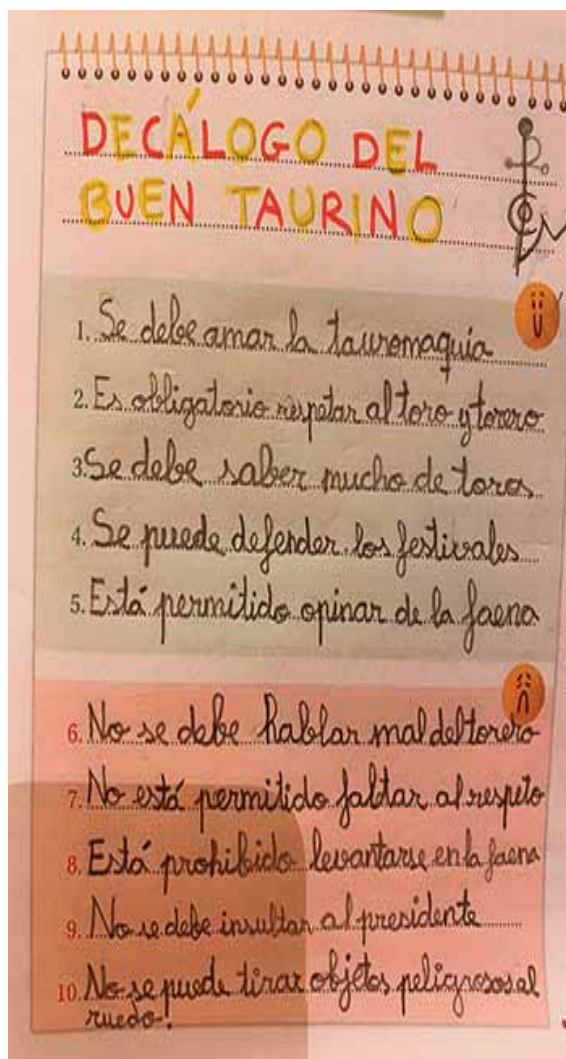 DECÁLOGO DEL
BUEN TAURINO
1. Se debe amar la tauromaquia
2. Es obligatorio respetar al toro y torero
3. Se debe saber mucho de toros
4. Se puede defender los festivales
5. Está permitido opinar de la faena
6. No se debe hablar mal del torero
7. No está permitido faltar al respeto
8. Está prohibido levantarse en la faena
9. No se debe insultar al presidente
10. No se puede tirar objetos peligrosos al
ruedo.